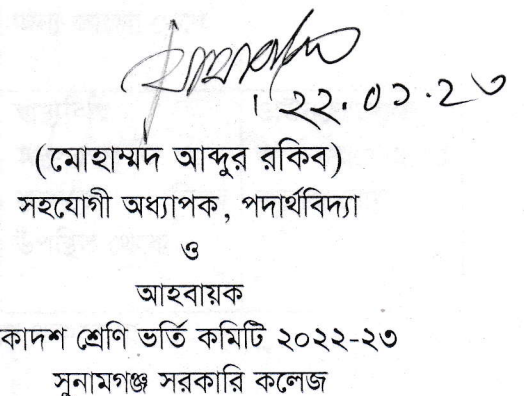 ২২.০১.২৩
(মোহাম্মদ আব্দুর রকিব)
সহযোগী অধ্যাপক, পদার্থবিদ্যা
ও
আহবায়ক
কাদশ শ্রেণি ভর্তি কমিটি ২০২২-২৩
সুনামগঞ্জ সরকারি কলেজ